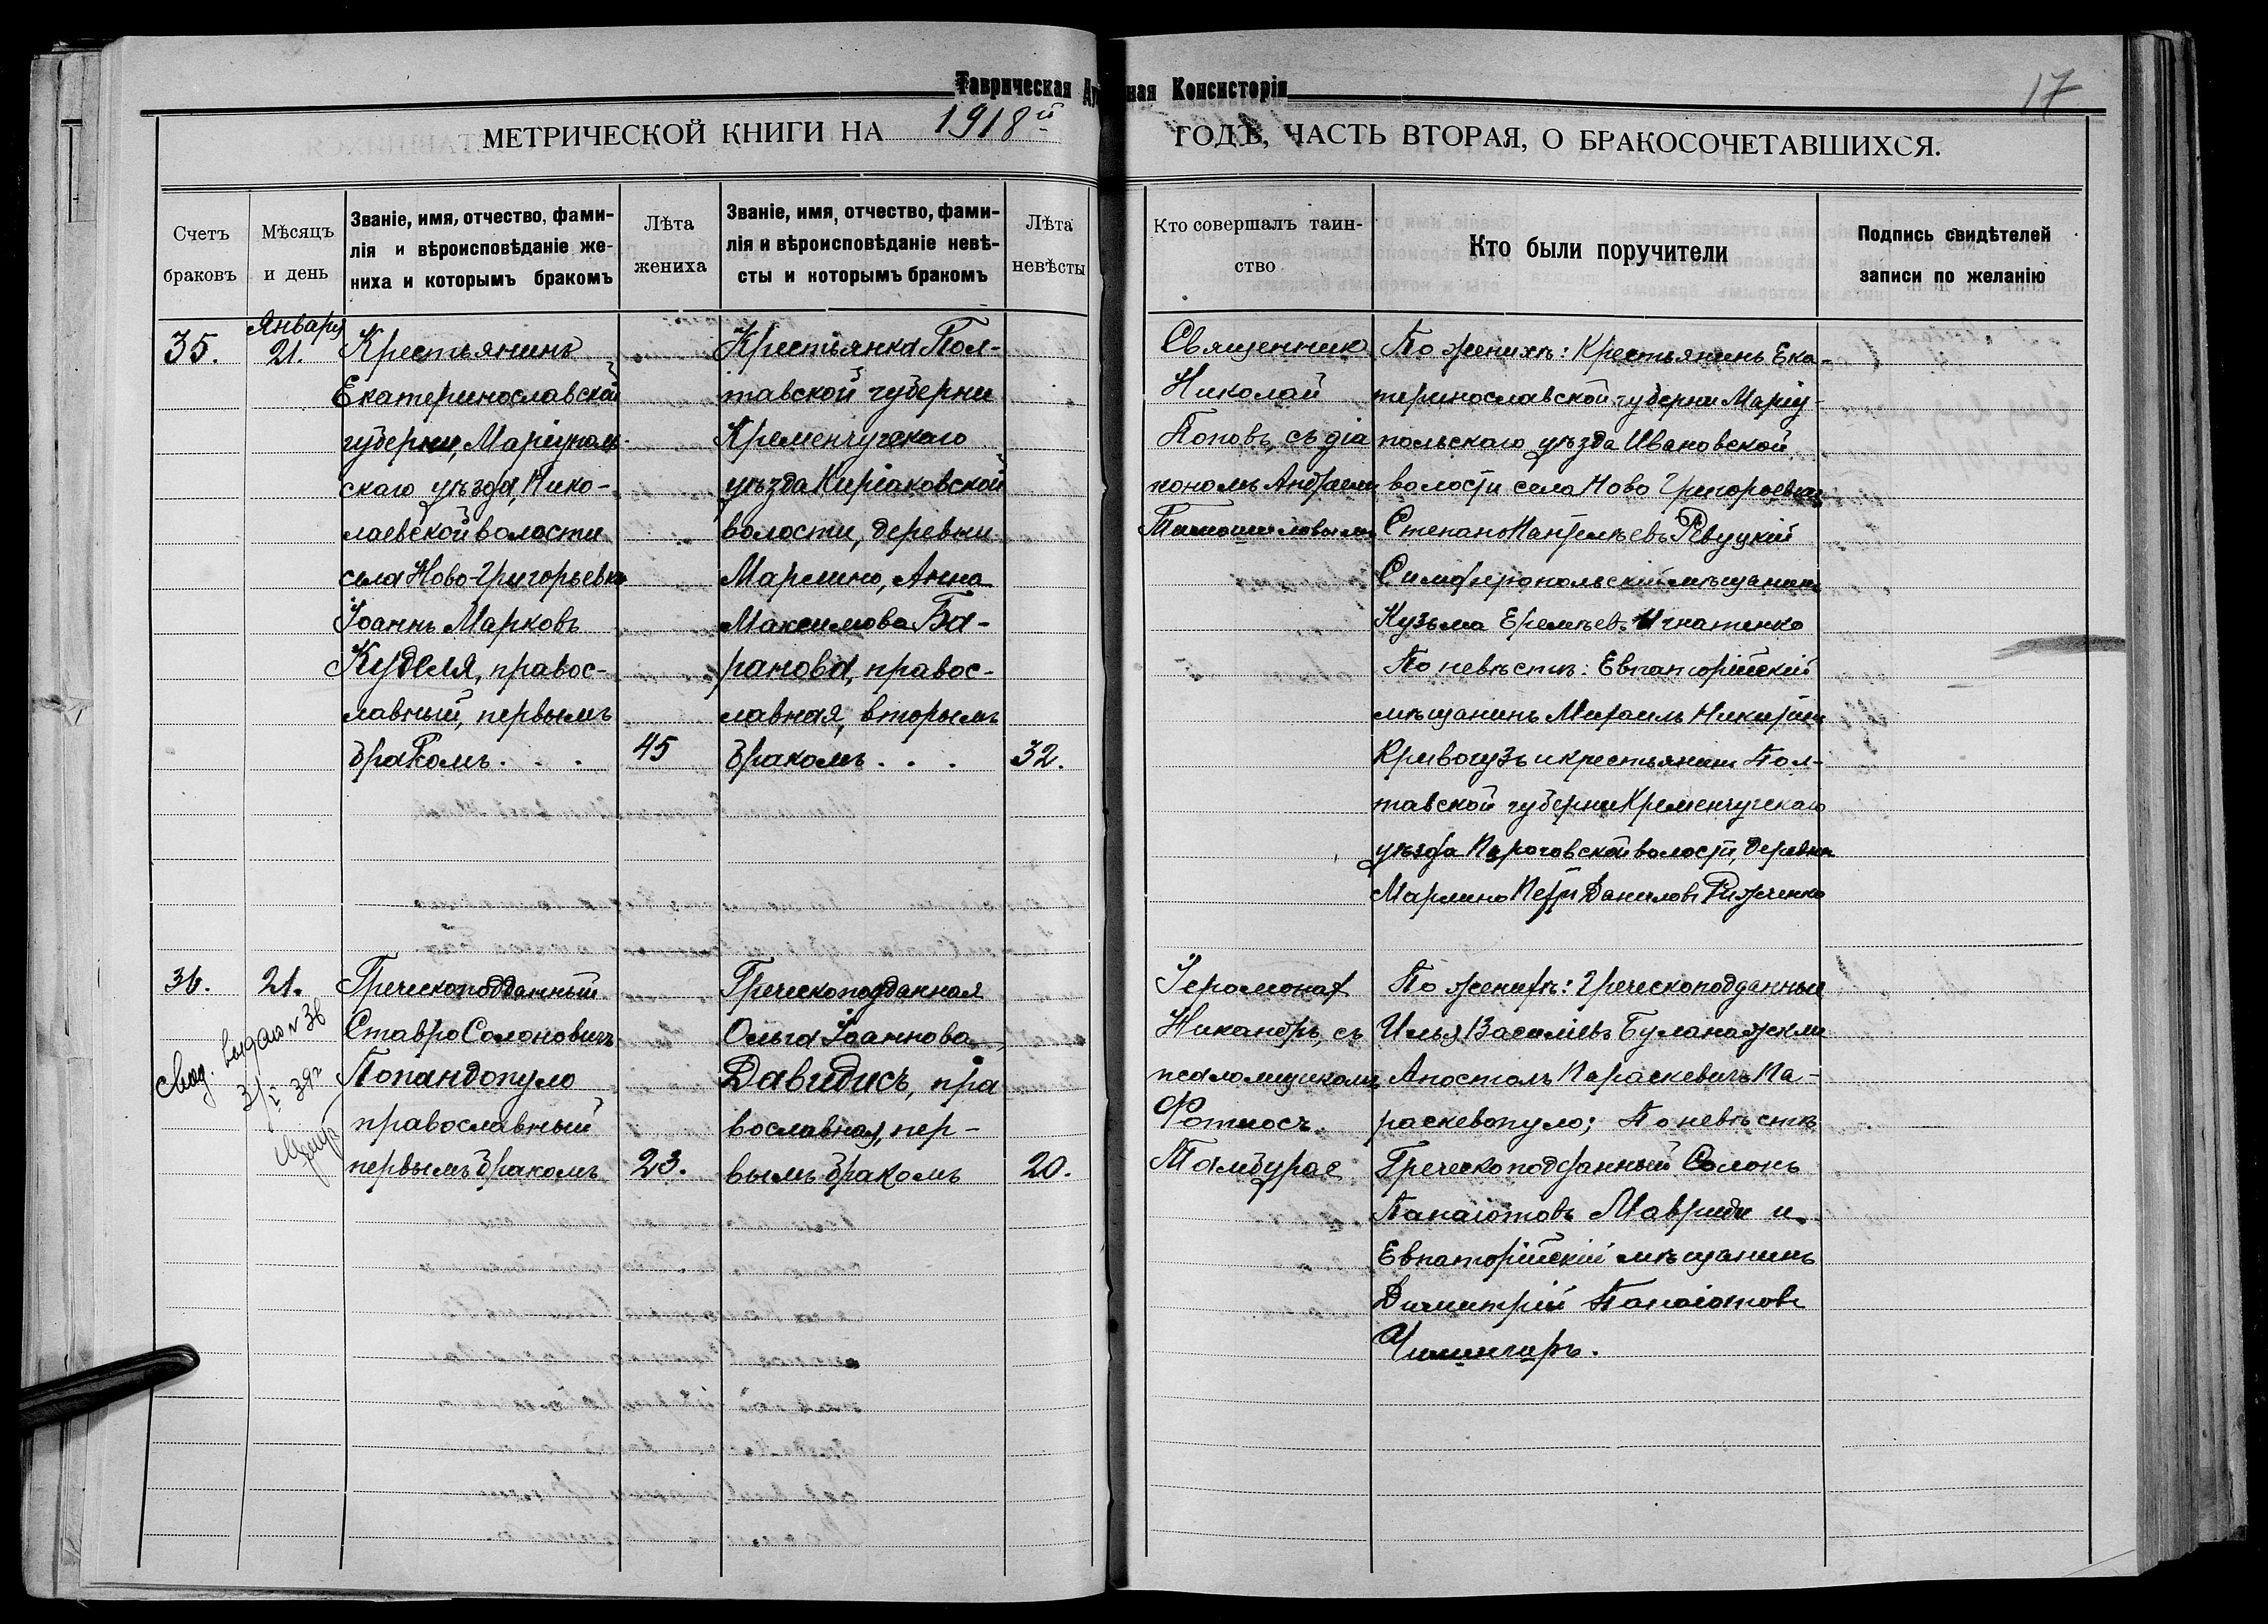 Таврическая
ная Консисторія
17
МЕТРИЧЕСКОЙ КНИГИ НА 1918й
ГОДЪ, ЧАСТЬ ВТОРАЯ, О БРАКОСОЧЕТАВШИХСЯ.
Счетъ
браковъ
Мѣсяцъ
и день
Званіе, имя, отчество, фами-
лія и вѣроисповѣданіе же-
ниха и которымъ бракомъ
Лѣта
жениха
Званіе, имя, отчество, фами-
лія и вѣроисповѣданіе невѣ-
сты и которымъ бракомъ
Лѣта
невѣсты
Кто совершалъ таин-
ство
Кто были поручители
Подпись свидѣтелей
записи по желанію
35.
Января
21.
Крестьянинъ
Екатеринославской
губерніи, Маріуполь-
скаго уѣзда, Нико-
лаевской волости
села Ново-Григорьевка
Іоаннъ Марковъ
Куделя, правос-
лавный, первымъ
бракомъ . . .
45
Крестьянка Пол-
тавской губерни
Кременчугскаго
уѣзда Киріаковской
волости, деревни
Марлино, Анна
Максимова Ба-
ранова, правос-
лавная, вторымъ
бракомъ . . .
32.
Священникъ
Николай
Поповъ съ діа
кономъ Андреемъ
По женихѣ: Крестьянинъ Ека-
теринославской губерни Маріу-
польскаго уѣзда Ивановской
волости села Ново Григорьевки
Степанъ Пантелѣевъ Ревуцкій
Симферопольскій мѣщанинъ
Кузьма Еремѣевъ Игнатенко
По невѣстѣ: Евпаторійскій
мѣщанинъ Михаилъ Никитинъ
Кривогузъ и крестьянинъ Пол-
тавской губерни Кременчугскаго
уѣзда волости, деревни
Марлино Петръ Даниловъ
36.
21.
Свид. выдано № 36
3/I 39г
Греческоподданный
Ставро Солоновичъ
Попандопуло
православный
первымъ бракомъ
23.
Греческоподданная
Ольга Іоаннова
Давидисъ, пра
вославная, пер-
вымъ бракомъ
20.
Іеромонах
Никандръ, съ
псаломщикомъ
Фотиосъ
Тамбурас
По женихѣ: Греческоподданные
Илья Василіевъ
Апостолъ Параскевичъ Па-
раскевопуло; По невѣстѣ
Греческоподданный Солонъ
Панаіотовъ Мавриди и
Евпаторійскій мѣщанинъ
Димитрій Панаіотовъ
Чилингиръ.